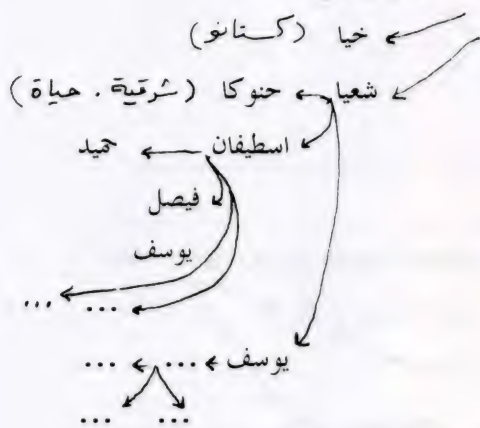 خيا (كستانو)
شعيا حنوكا (شرقية . حياة)
اسطيفان حميد
فيصل
يوسف
... ...
يوسف ... ...
... ...